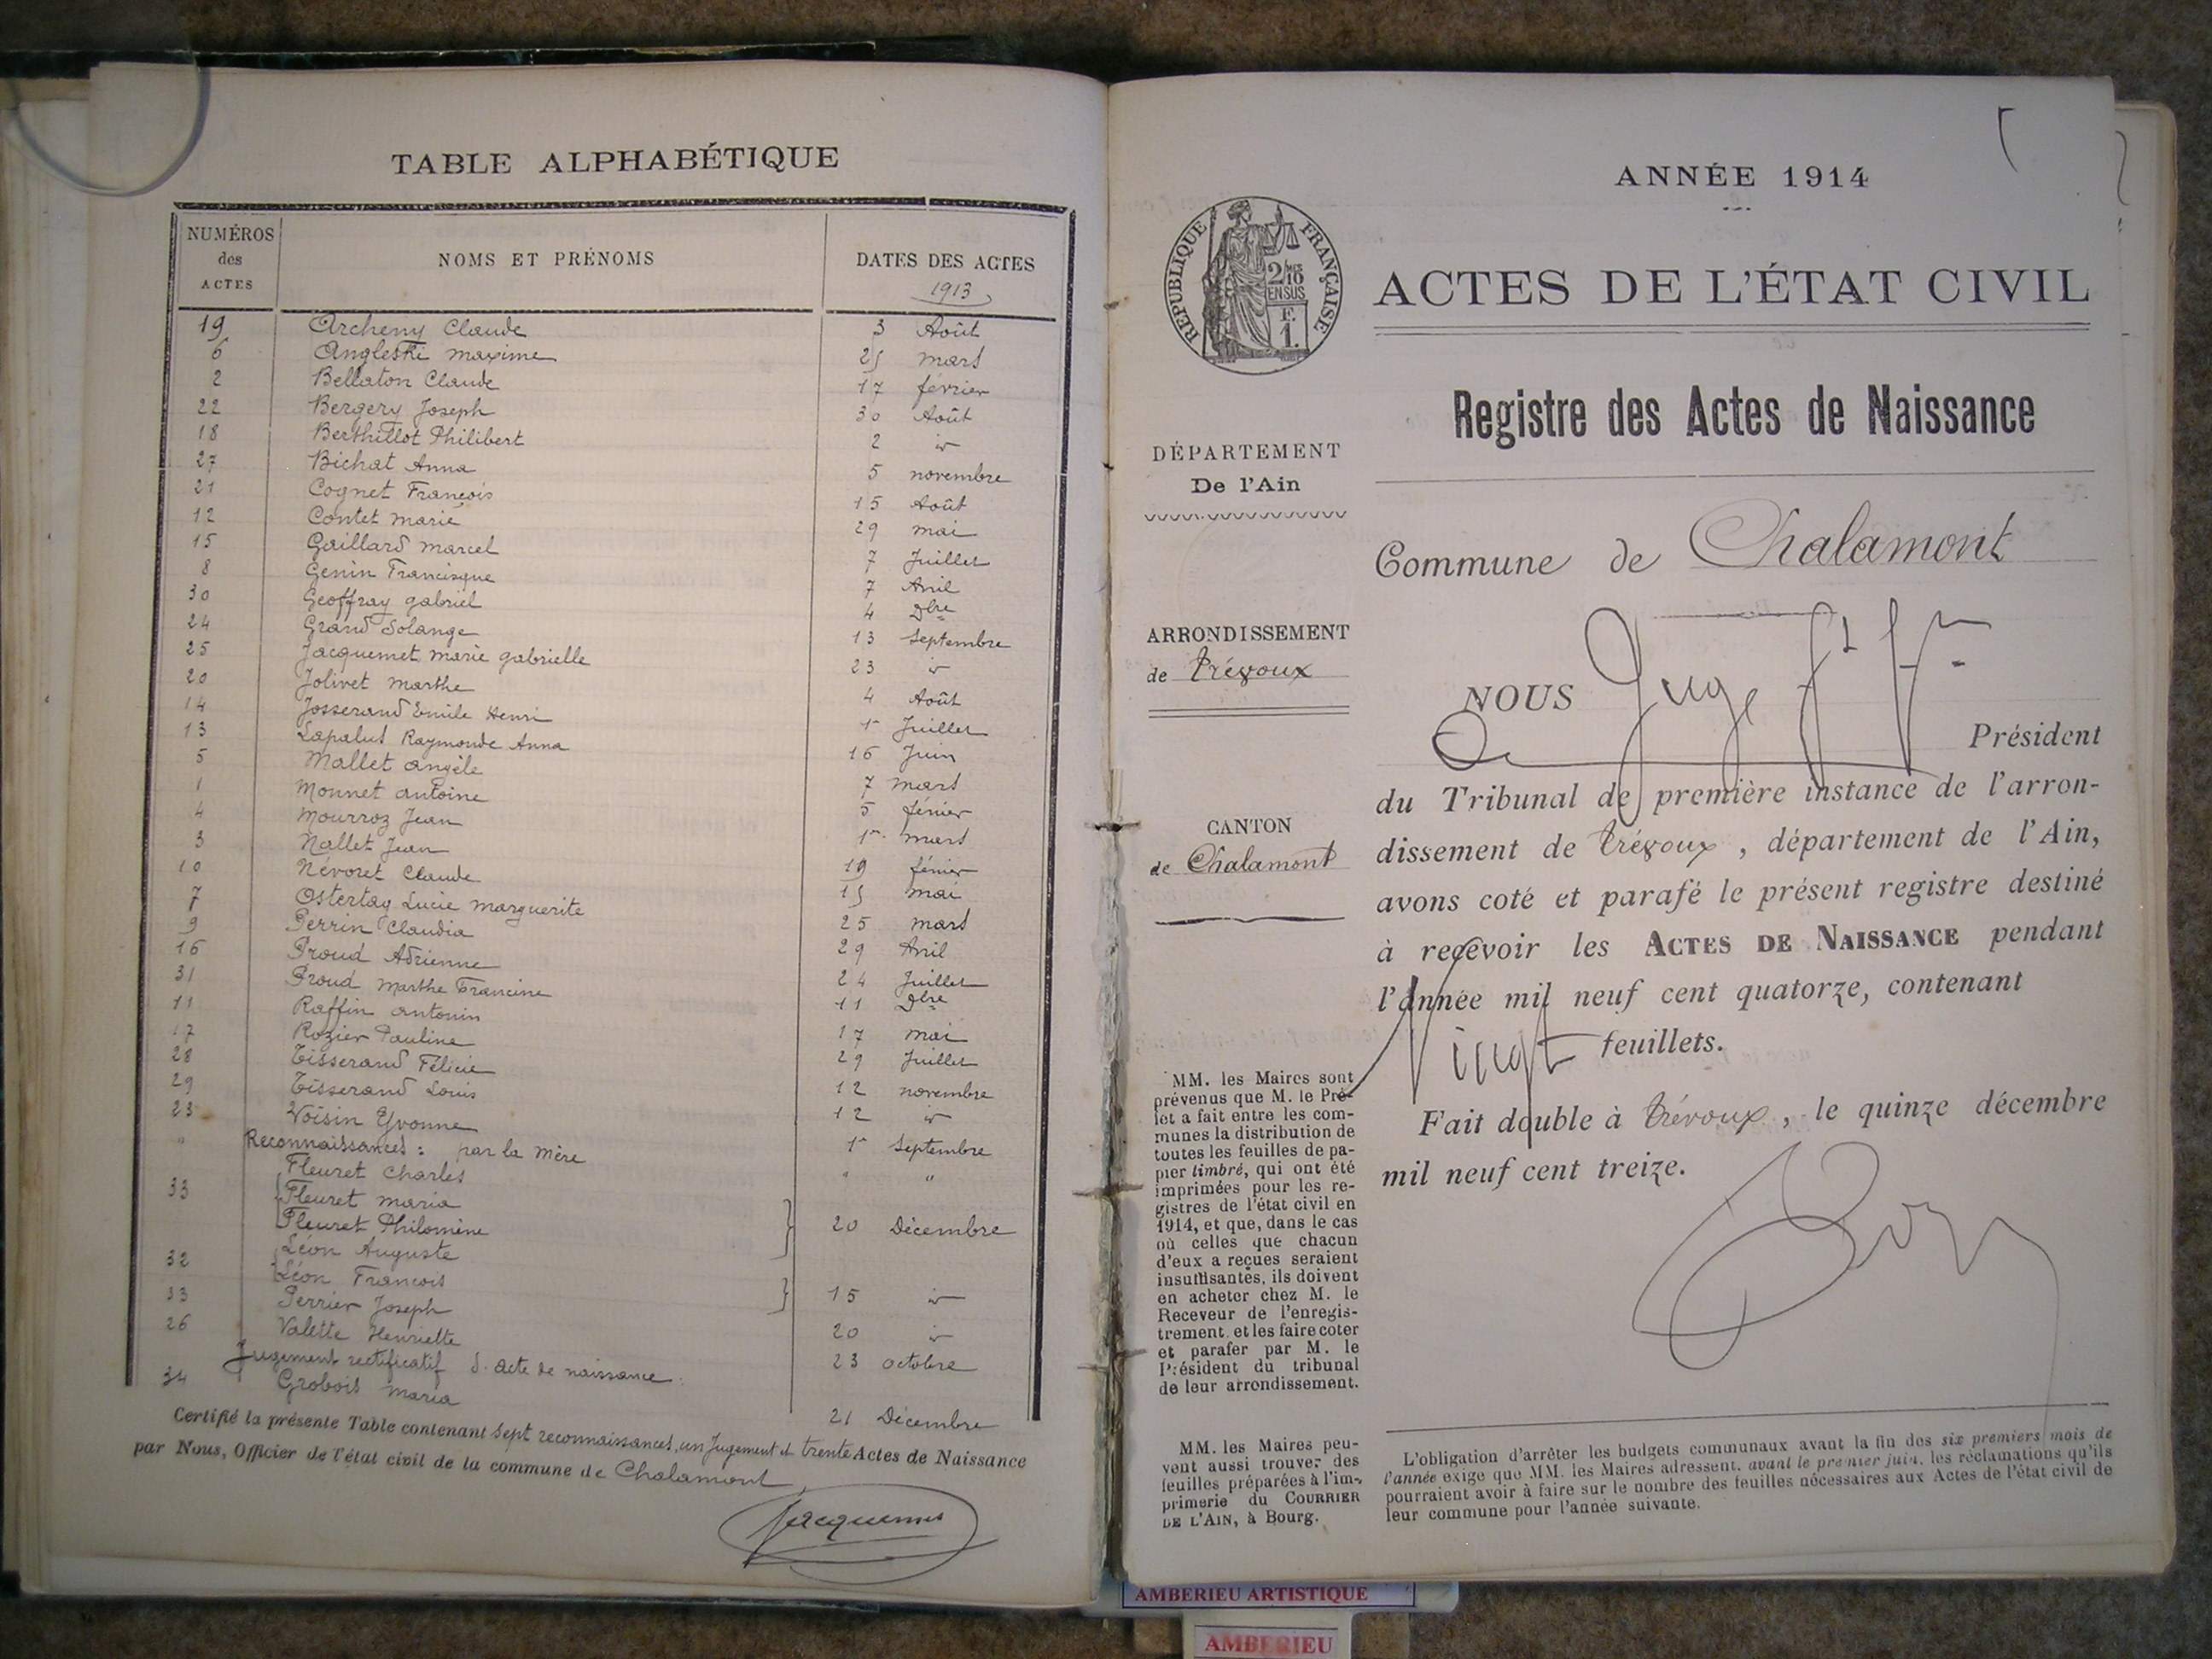 TABLE ALPHABÉTIQUE
NUMÉROS des ACTES
NOMS ET PRÉNOMS
DATES DES ACTES
1913
19 Archeny Claude 3 Août
6 Angleski maxime 25 mars
2 Bellaton Claude 17 février
22 Bergery Joseph 30 Août
18 Berthillot Philibert 2 id
27 Bichat Anna 5 novembre
21 Cognet François 15 Août
12 Contet marie 29 mai
15 Gaillard marcel 7 Juillet
8 Genin Francisque 7 Avril
30 Geoffray gabriel 4 Dbre
24 Grand Solange 13 Septembre
25 Jacquemet marie gabrielle 23 id
20 Jolivet marthe 4 Août
14 Josserand Emile Henri 1er Juillet
13 Lapalus Raymonde Anna 16 Juin
5 Mallet angèle 7 mars
1 Monnet antoine 5 février
4 Mourroz Jean 1er mars
3 Nallet Jean 19 février
10 Névoret Claude 15 mai
7 Ostertag Lucie marguerite 25 mars
9 Perrin Claudia 29 Avril
16 Proud Adrienne 24 Juillet
31 Proud Marthe Francine 11 Dbre
11 Raffin antonin 17 mai
17 Rozier Pauline 29 Juillet
28 Tisserand Félicie 12 novembre
29 Tisserand Louis 12 id
23 Voisin Yvonne 1er Septembre
" Reconnaissances : par la mère " "
Fleuret Charles
33 Fleuret maria 20 Décembre
Fleuret Philomène
Léon Auguste
32 Léon François 15 id
33 Perrier Joseph 20 id
26 Valette Henriette 23 octobre
Jugement rectificatif d. acte de naissance :
34 Grobois Maria 21 Décembre
Certifié la présente Table contenant sept reconnaissances, un Jugement et trente Actes de Naissance
par Nous, Officier de l'état civil de la commune de Chalamont
ANNÉE 1914
RÉPUBLIQUE FRANÇAISE
2/10
EN SUS
F.
1.
ACTES DE L'ÉTAT CIVIL
Registre des Actes de Naissance
DÉPARTEMENT
De l'Ain
Commune de Chalamont
ARRONDISSEMENT
de Trévoux
CANTON
de Chalamont
NOUS Juge
Président
du Tribunal de première instance de l'arron-
dissement de Trévoux, département de l'Ain,
avons coté et parafé le présent registre destiné
à recevoir les ACTES DE NAISSANCE pendant
l'année mil neuf cent quatorze, contenant
Vingt feuillets.
Fait double à Trévoux, le quinze décembre
mil neuf cent treize.
MM. les Maires sont
prévenus que M. le Pré-
fet a fait entre les com-
munes la distribution de
toutes les feuilles de pa-
pier timbré, qui ont été
imprimées pour les re-
gistres de l'état civil en
1914, et que, dans le cas
où celles que chacun
d'eux a reçues seraient
insuffisantes, ils doivent
en acheter chez M. le
Receveur de l'enregis-
trement. et les faire coter
et parafer par M. le
Président du tribunal
de leur arrondissement.
MM. les Maires peu-
vent aussi trouver des
feuilles préparées à l'im-
primerie du COURRIER
DE L'AIN, à Bourg.
L'obligation d'arrêter les budgets communaux avant la fin des six premiers mois de
l'année exige que MM. les Maires adressent, avant le premier juin, les réclamations qu'ils
pourraient avoir à faire sur le nombre des feuilles nécessaires aux Actes de l'état civil de
leur commune pour l'année suivante.
AMBERIEU ARTISTIQUE
AMBERIEU